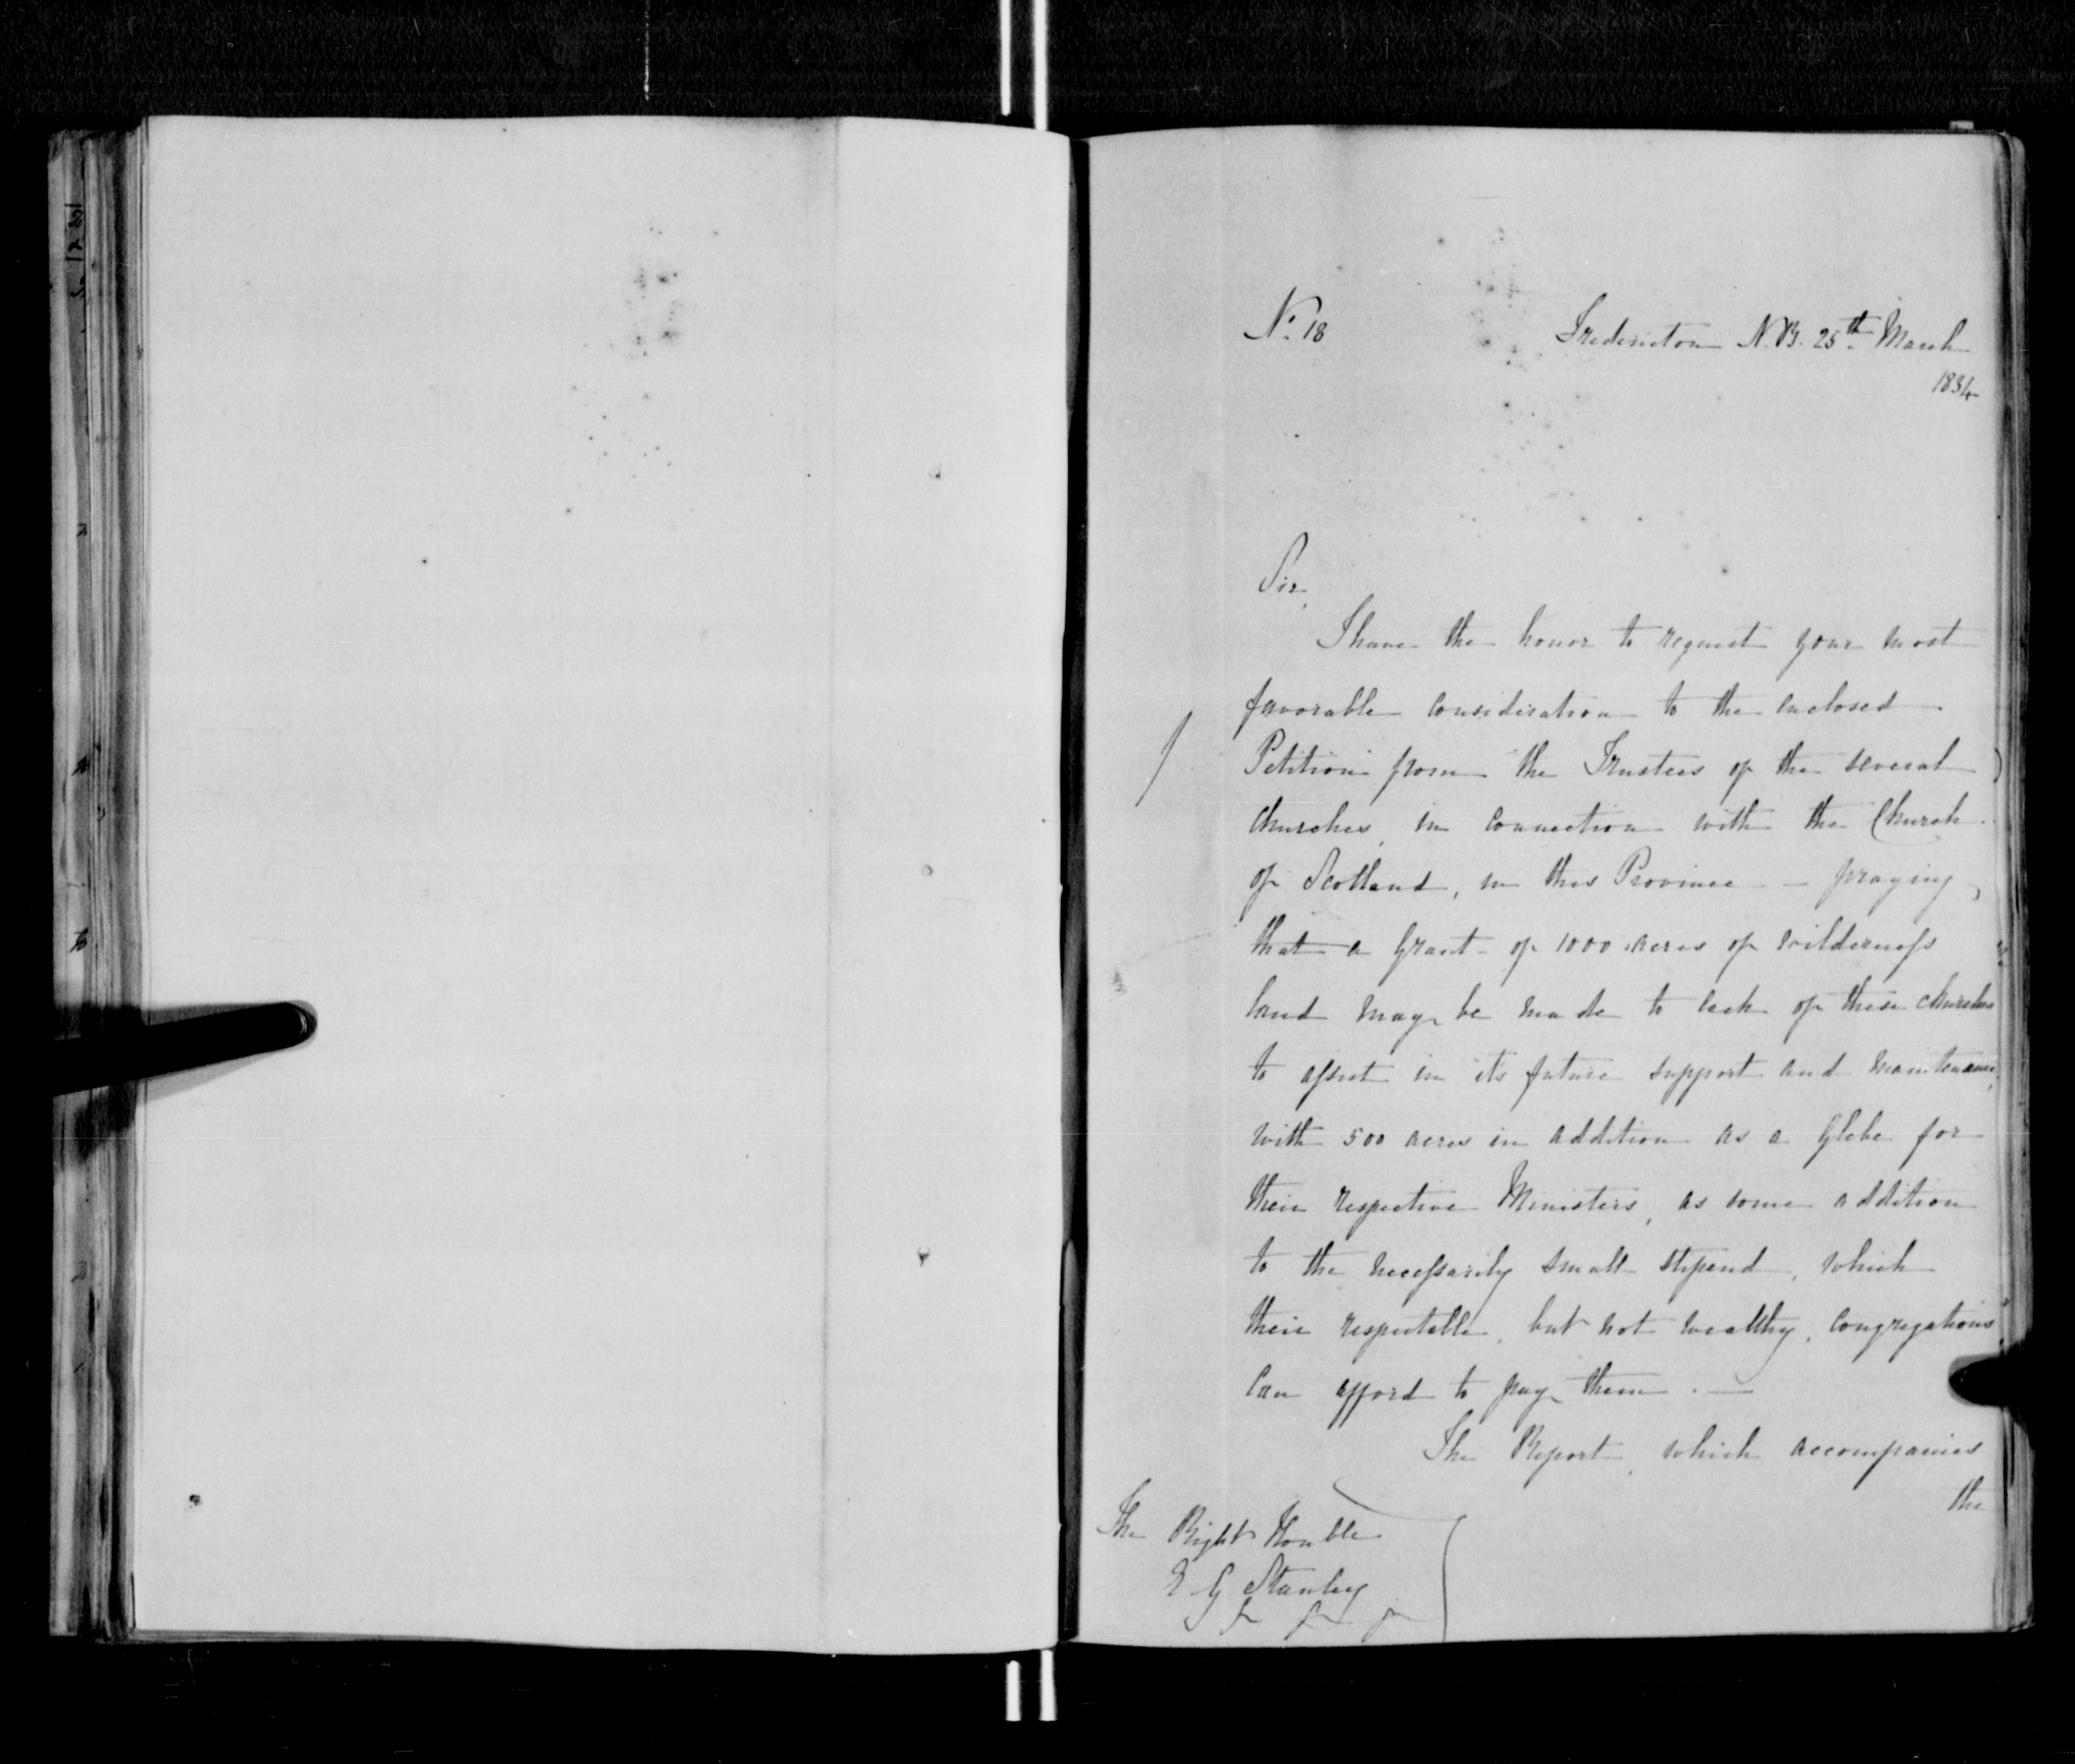 No. 18
Fredericton N.B. 25th March
1834
Sir,
I have the honor to request your most
favorable consideration to the enclosed
Petition from the Trustees of the several
churches, in connection with the Church
of Scotland, in this Province — praying
that a Grant of 1000 acres of wilderness
land may be made to each of these churches
to assist in it's future support and maintenance,
with 500 acres in addition as a Glebe for
their respective Ministers, as some addition
to the necessarily small stipend, which
their respectable, but not wealthy, congregations
can afford to pay them. —
The Report, which accompanies
the
The Right Honble
E G Stanley
&c &c &c